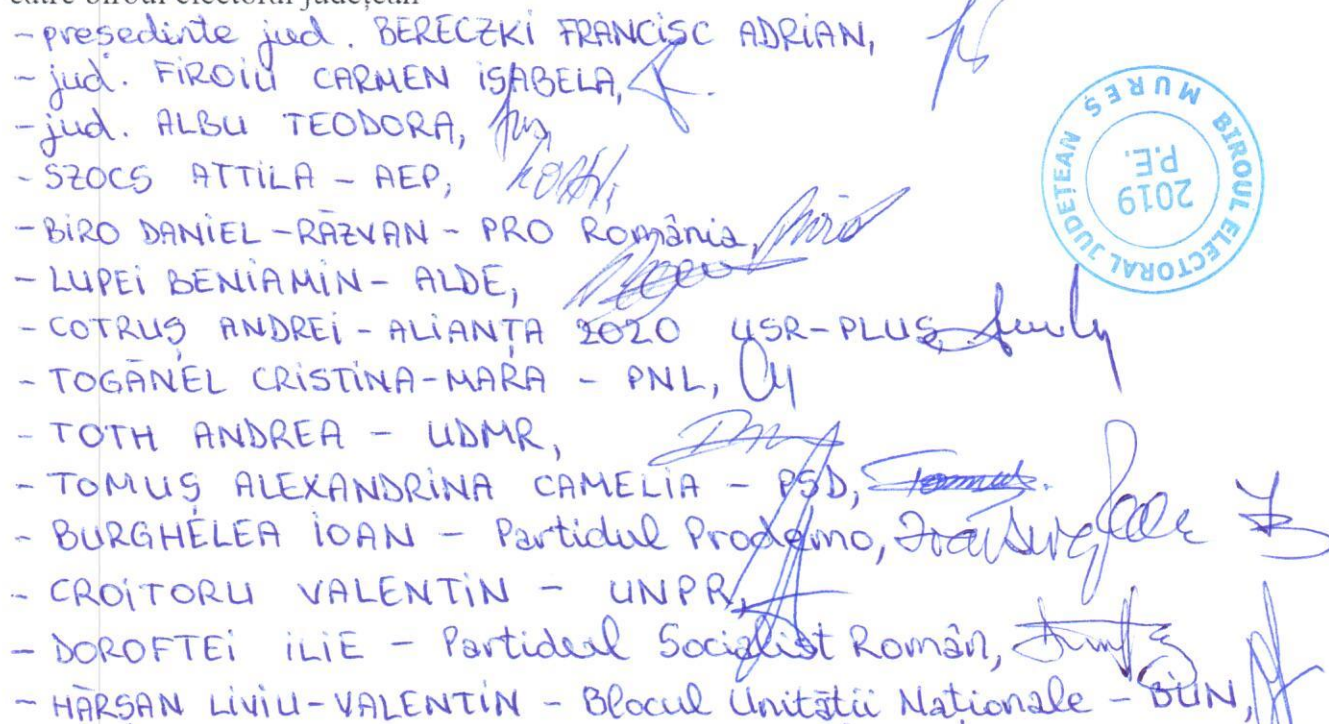 către biroul electoral județean
- președinte jud. BERECZKI FRANCISC ADRIAN,
- jud. FIROIU CARMEN ISABELA,
- jud. ALBU TEODORA,
- SZOCS ATTILA - AEP,
- BIRO DANIEL-RĂZVAN - PRO România,
- LUPEI BENIAMIN - ALDE,
- COTRUȘ ANDREI - ALIANȚA 2020 USR-PLUS,
- TOGĂNEL CRISTINA-MARA - PNL,
- TOTH ANDREA - UDMR,
- TOMUȘ ALEXANDRINA CAMELIA - PSD,
- BURGHELEA IOAN - Partidul Prodemo,
- CROITORU VALENTIN - UNPR,
- DOROFTEI ILIE - Partidul Socialist Român,
- HĂRȘAN LIVIU-VALENTIN - Blocul Unității Naționale - BUN,
BIROUL ELECTORAL JUDEȚEAN MUREȘ
P.E.
2019